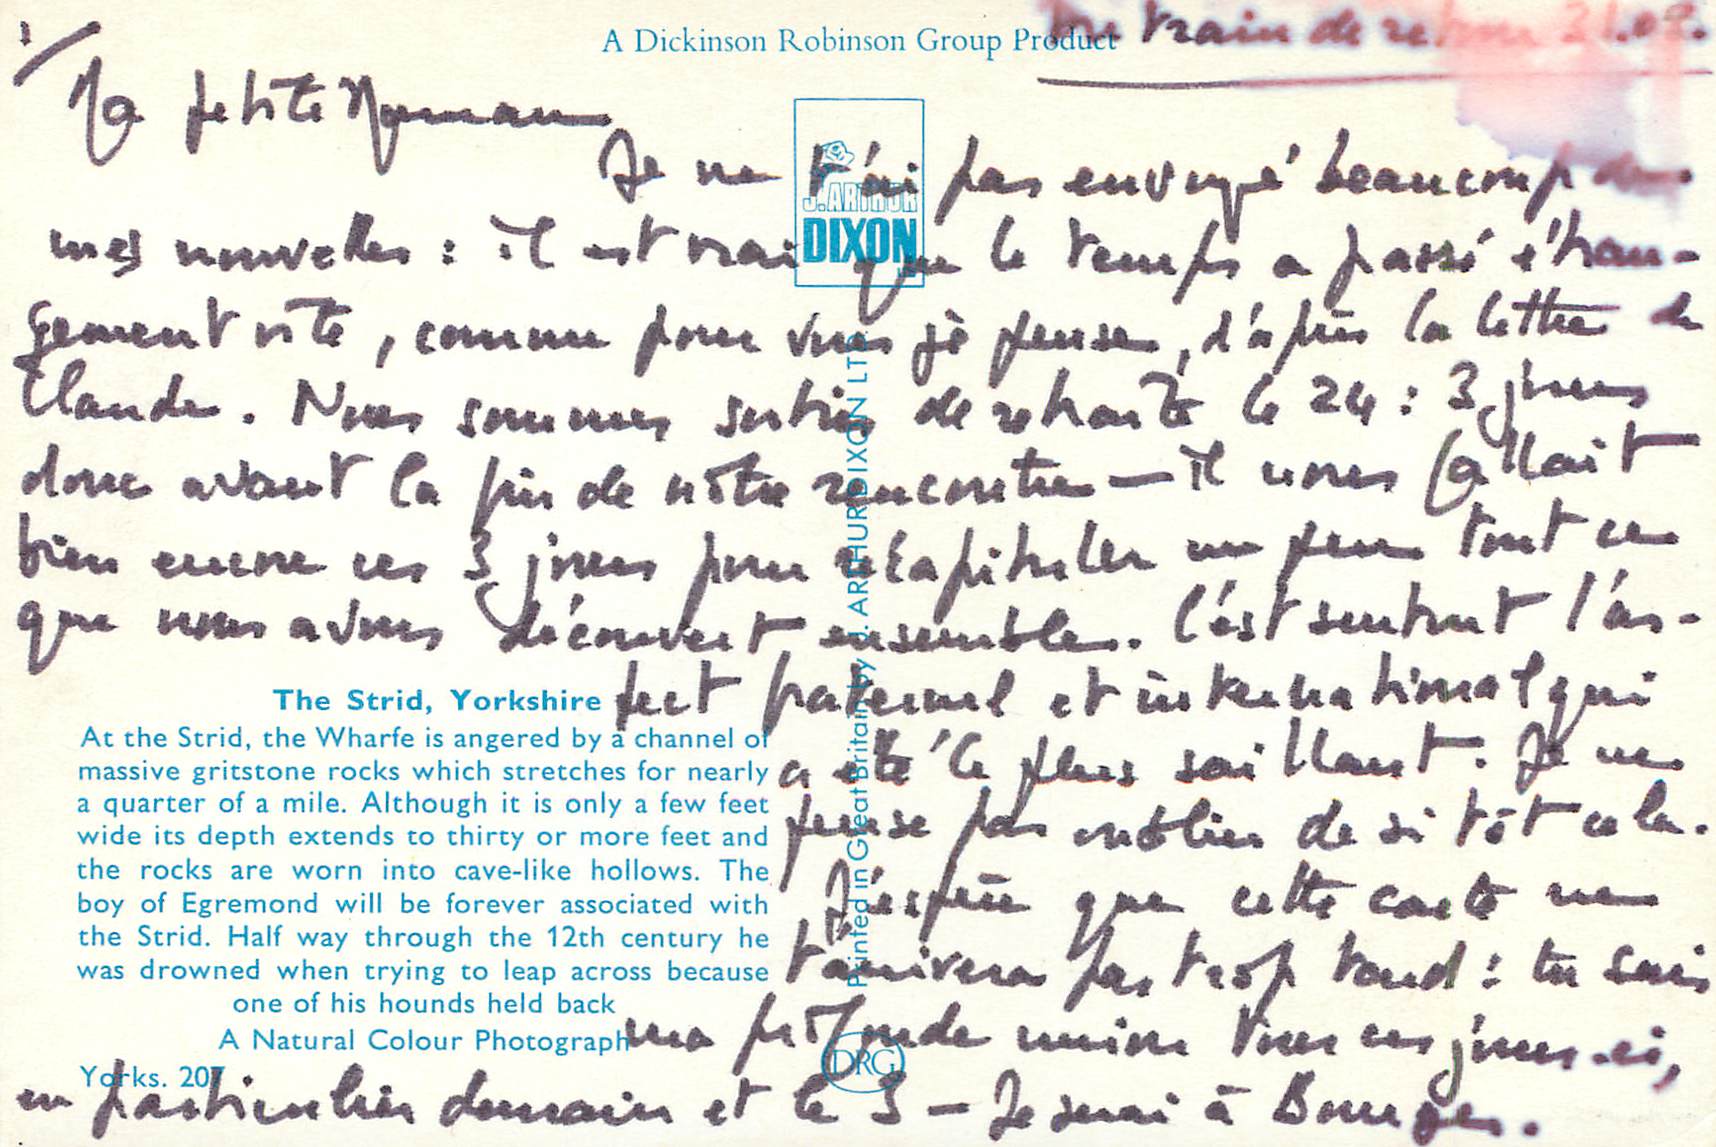 A Dickinson Robinson Group Product
train de retour 31.08.
1/
Ma petite Maman
Je ne t'ai pas envoyé beaucoup de
mes nouvelles : il est vrai que le temps a passé étran-
gement vite, comme pour vous je pense, d'après la lettre de
Claude. Nous sommes sortis de retraite le 24 : 3 jours
donc avant la fin de notre rencontre — il nous fallait
bien encore ces 3 jours pour récapituler un peu tout ce
que nous avons découvert ensemble. C'est surtout l'as-
pect fraternel et international qui
a été le plus saillant. Je ne
pense pas oublier de si tôt cela.
J'espère que cette carte ne
t'arrivera pas trop tard : tu sais
ma profonde union tous ces jours-ci,
en particulier demain et le 3 — Je serai à Bourges.
J. ARTHUR
DIXON
Printed in Great Britain by J. ARTHUR DIXON LTD.
The Strid, Yorkshire
At the Strid, the Wharfe is angered by a channel of
massive gritstone rocks which stretches for nearly
a quarter of a mile. Although it is only a few feet
wide its depth extends to thirty or more feet and
the rocks are worn into cave-like hollows. The
boy of Egremond will be forever associated with
the Strid. Half way through the 12th century he
was drowned when trying to leap across because
one of his hounds held back
A Natural Colour Photograph
Yorks. 207
DRG